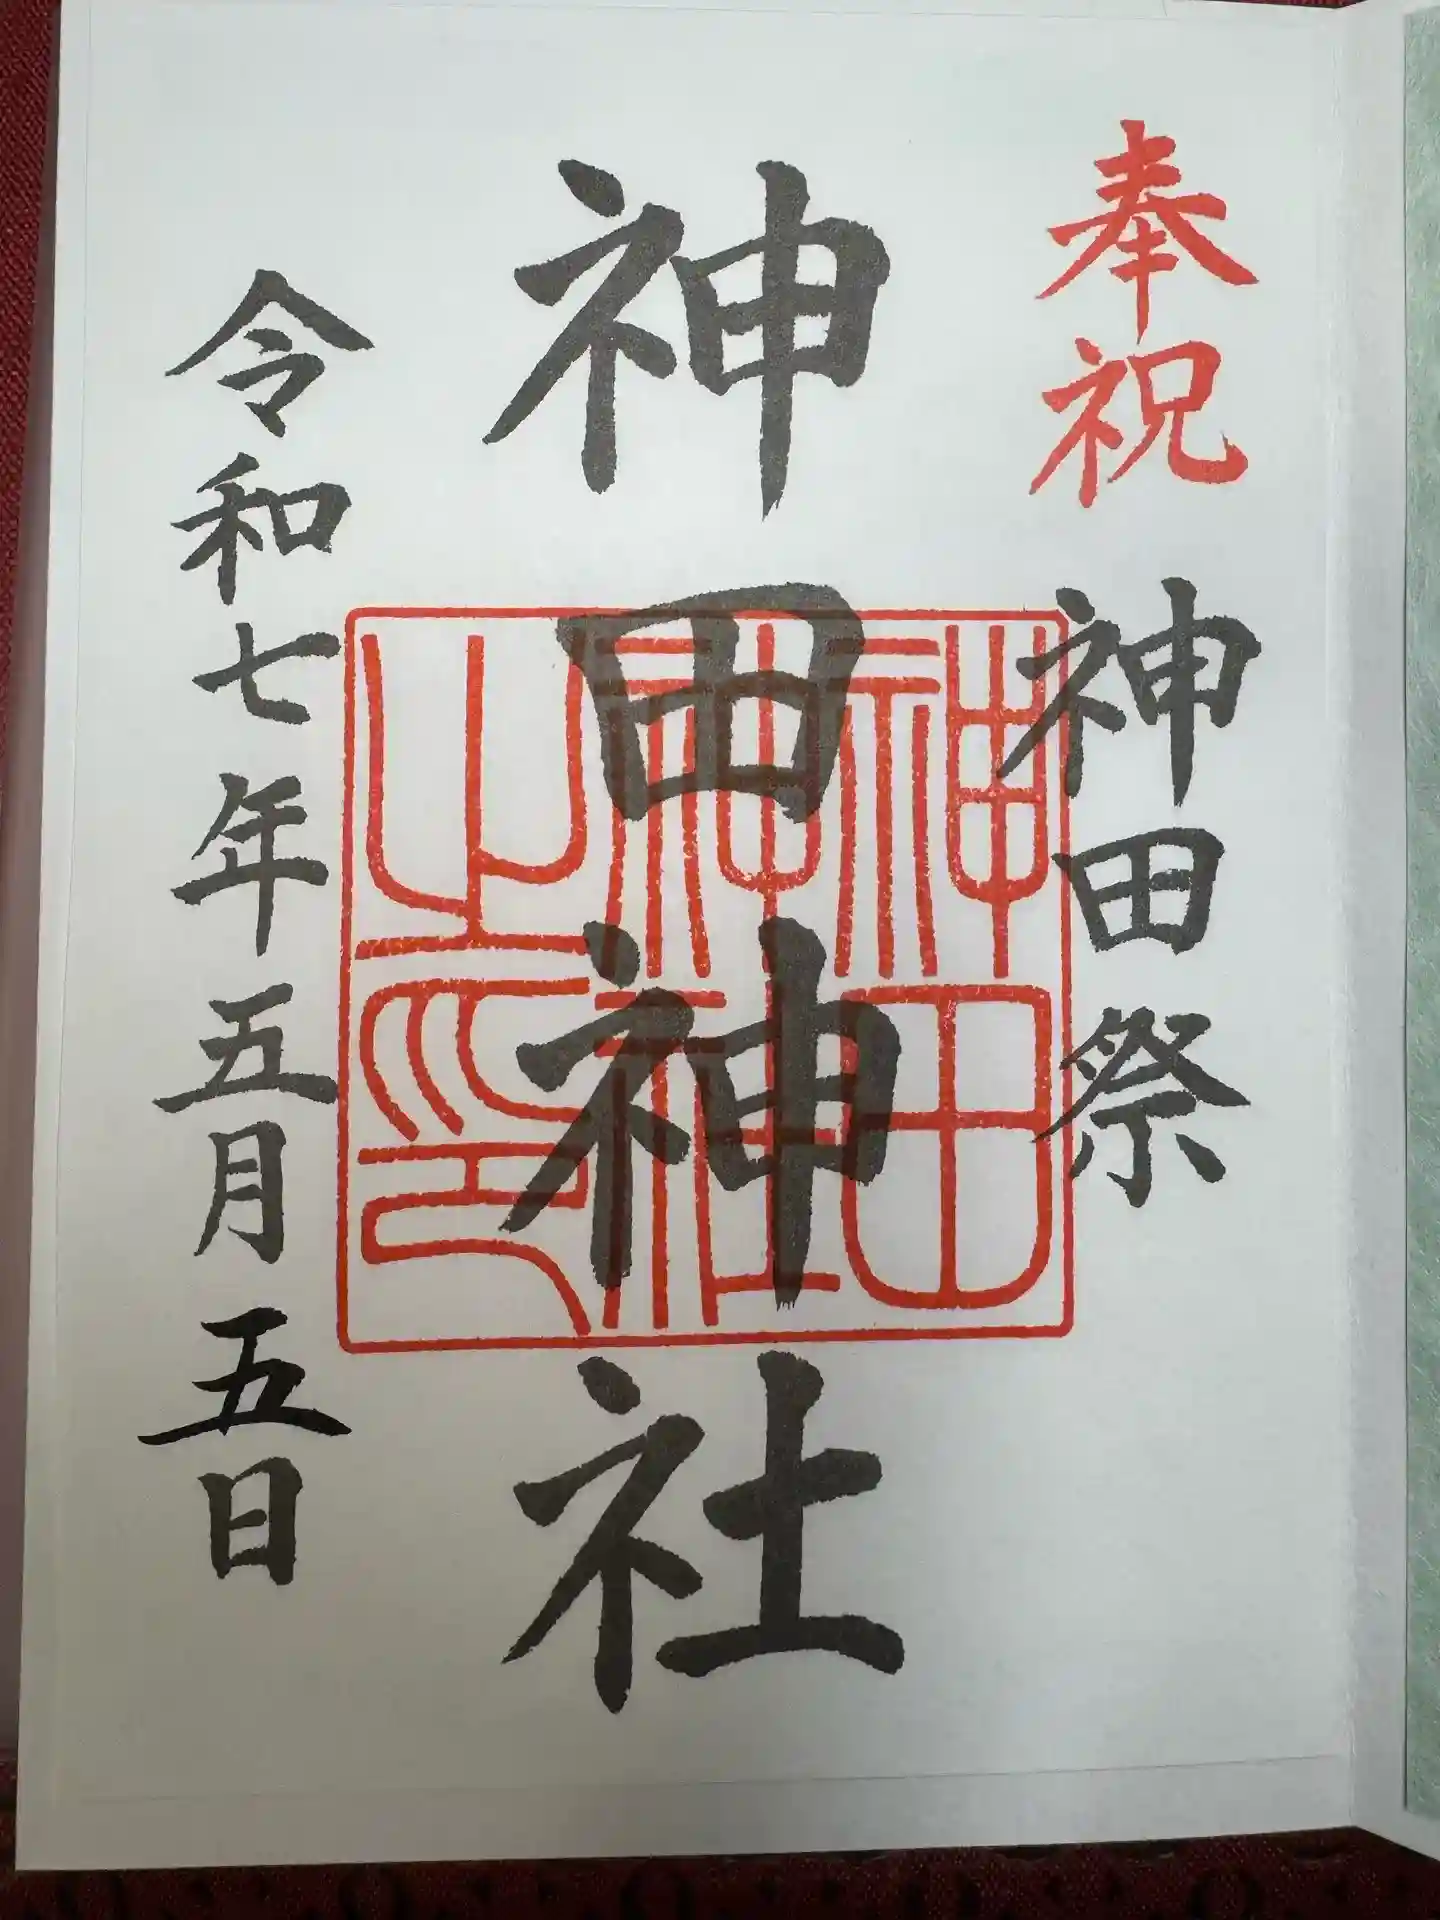 奉祝
神田祭
神田神社
神田
神社
之印
令和七年五月五日